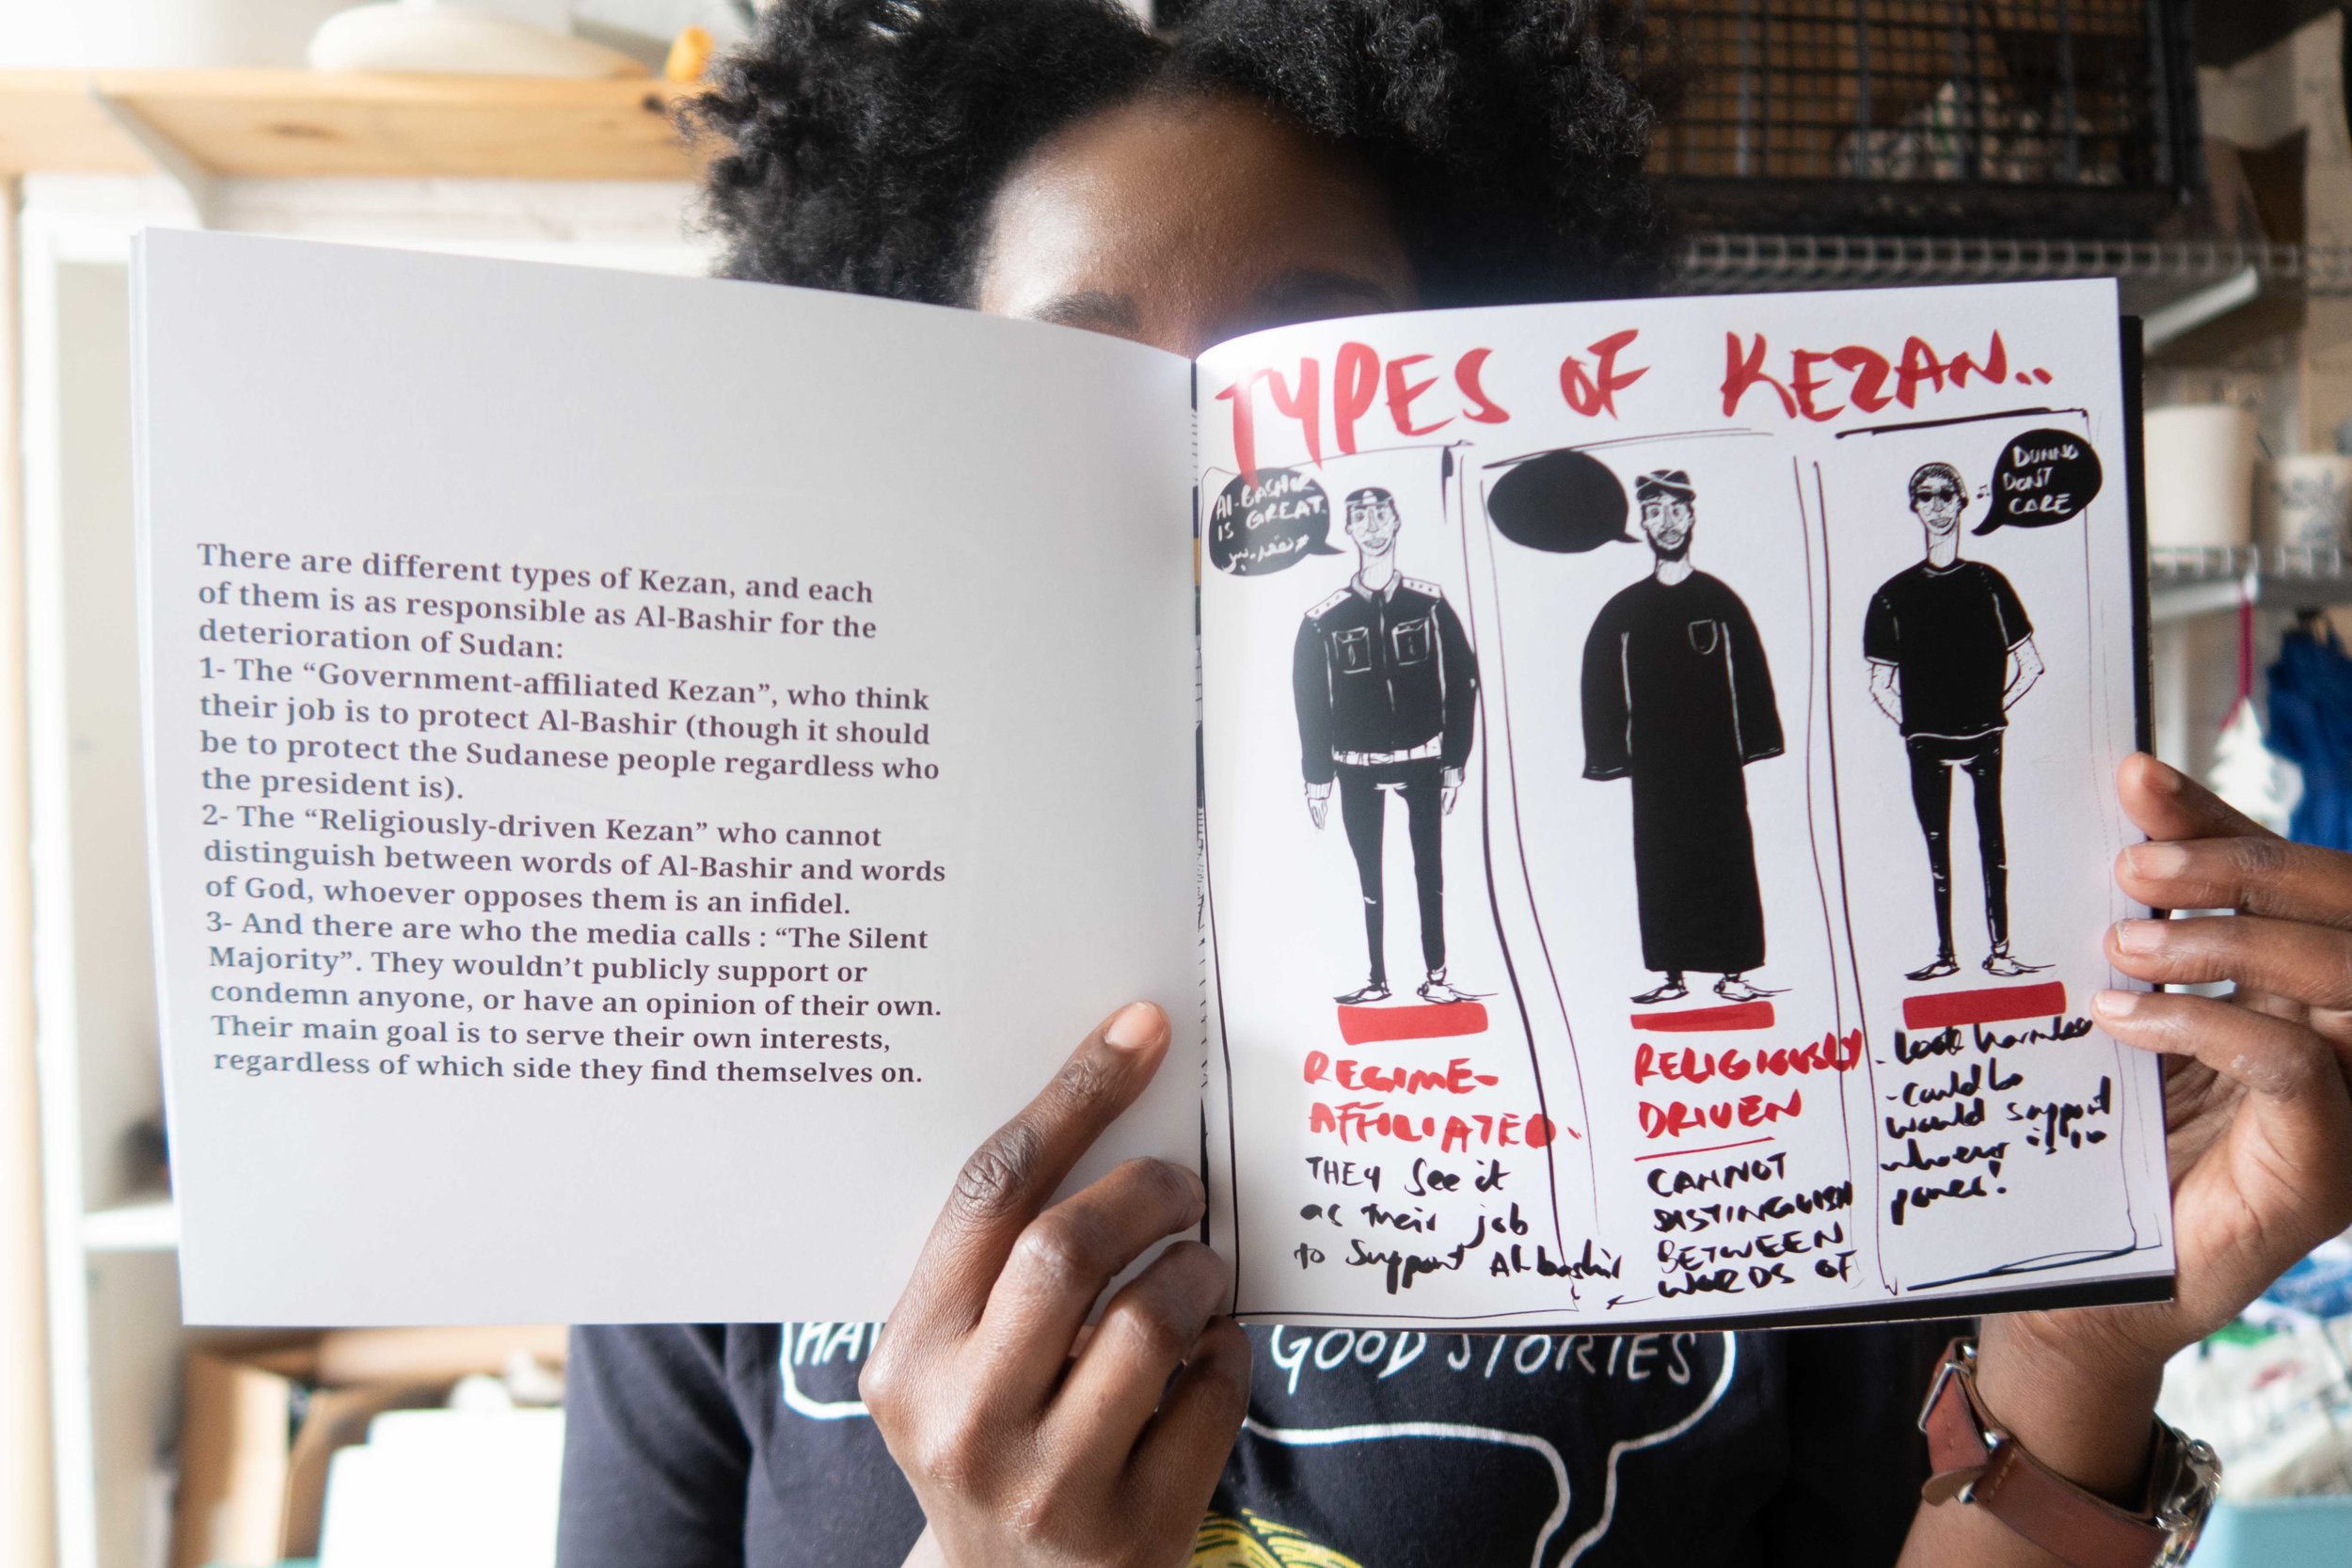 There are different types of Kezan, and each
of them is as responsible as Al-Bashir for the
deterioration of Sudan:
1- The “Government-affiliated Kezan”, who think
their job is to protect Al-Bashir (though it should
be to protect the Sudanese people regardless who
the president is).
2- The “Religiously-driven Kezan” who cannot
distinguish between words of Al-Bashir and words
of God, whoever opposes them is an infidel.
3- And there are who the media calls : “The Silent
Majority”. They wouldn’t publicly support or
condemn anyone, or have an opinion of their own.
Their main goal is to serve their own interests,
regardless of which side they find themselves on.
TYPES OF KEZAN..
Al-BASHIR
IS GREAT
DUNNO
DON'T
CARE
REGIME-
AFFILIATED
THEY See it
as their job
to Support Al-bashir
RELIGIOUSLY
DRIVEN
CANNOT
DISTINGUISH
BETWEEN
WORDS OF
- look harmless
- Could be
would support
whoever is in
power!
GOOD STORIES